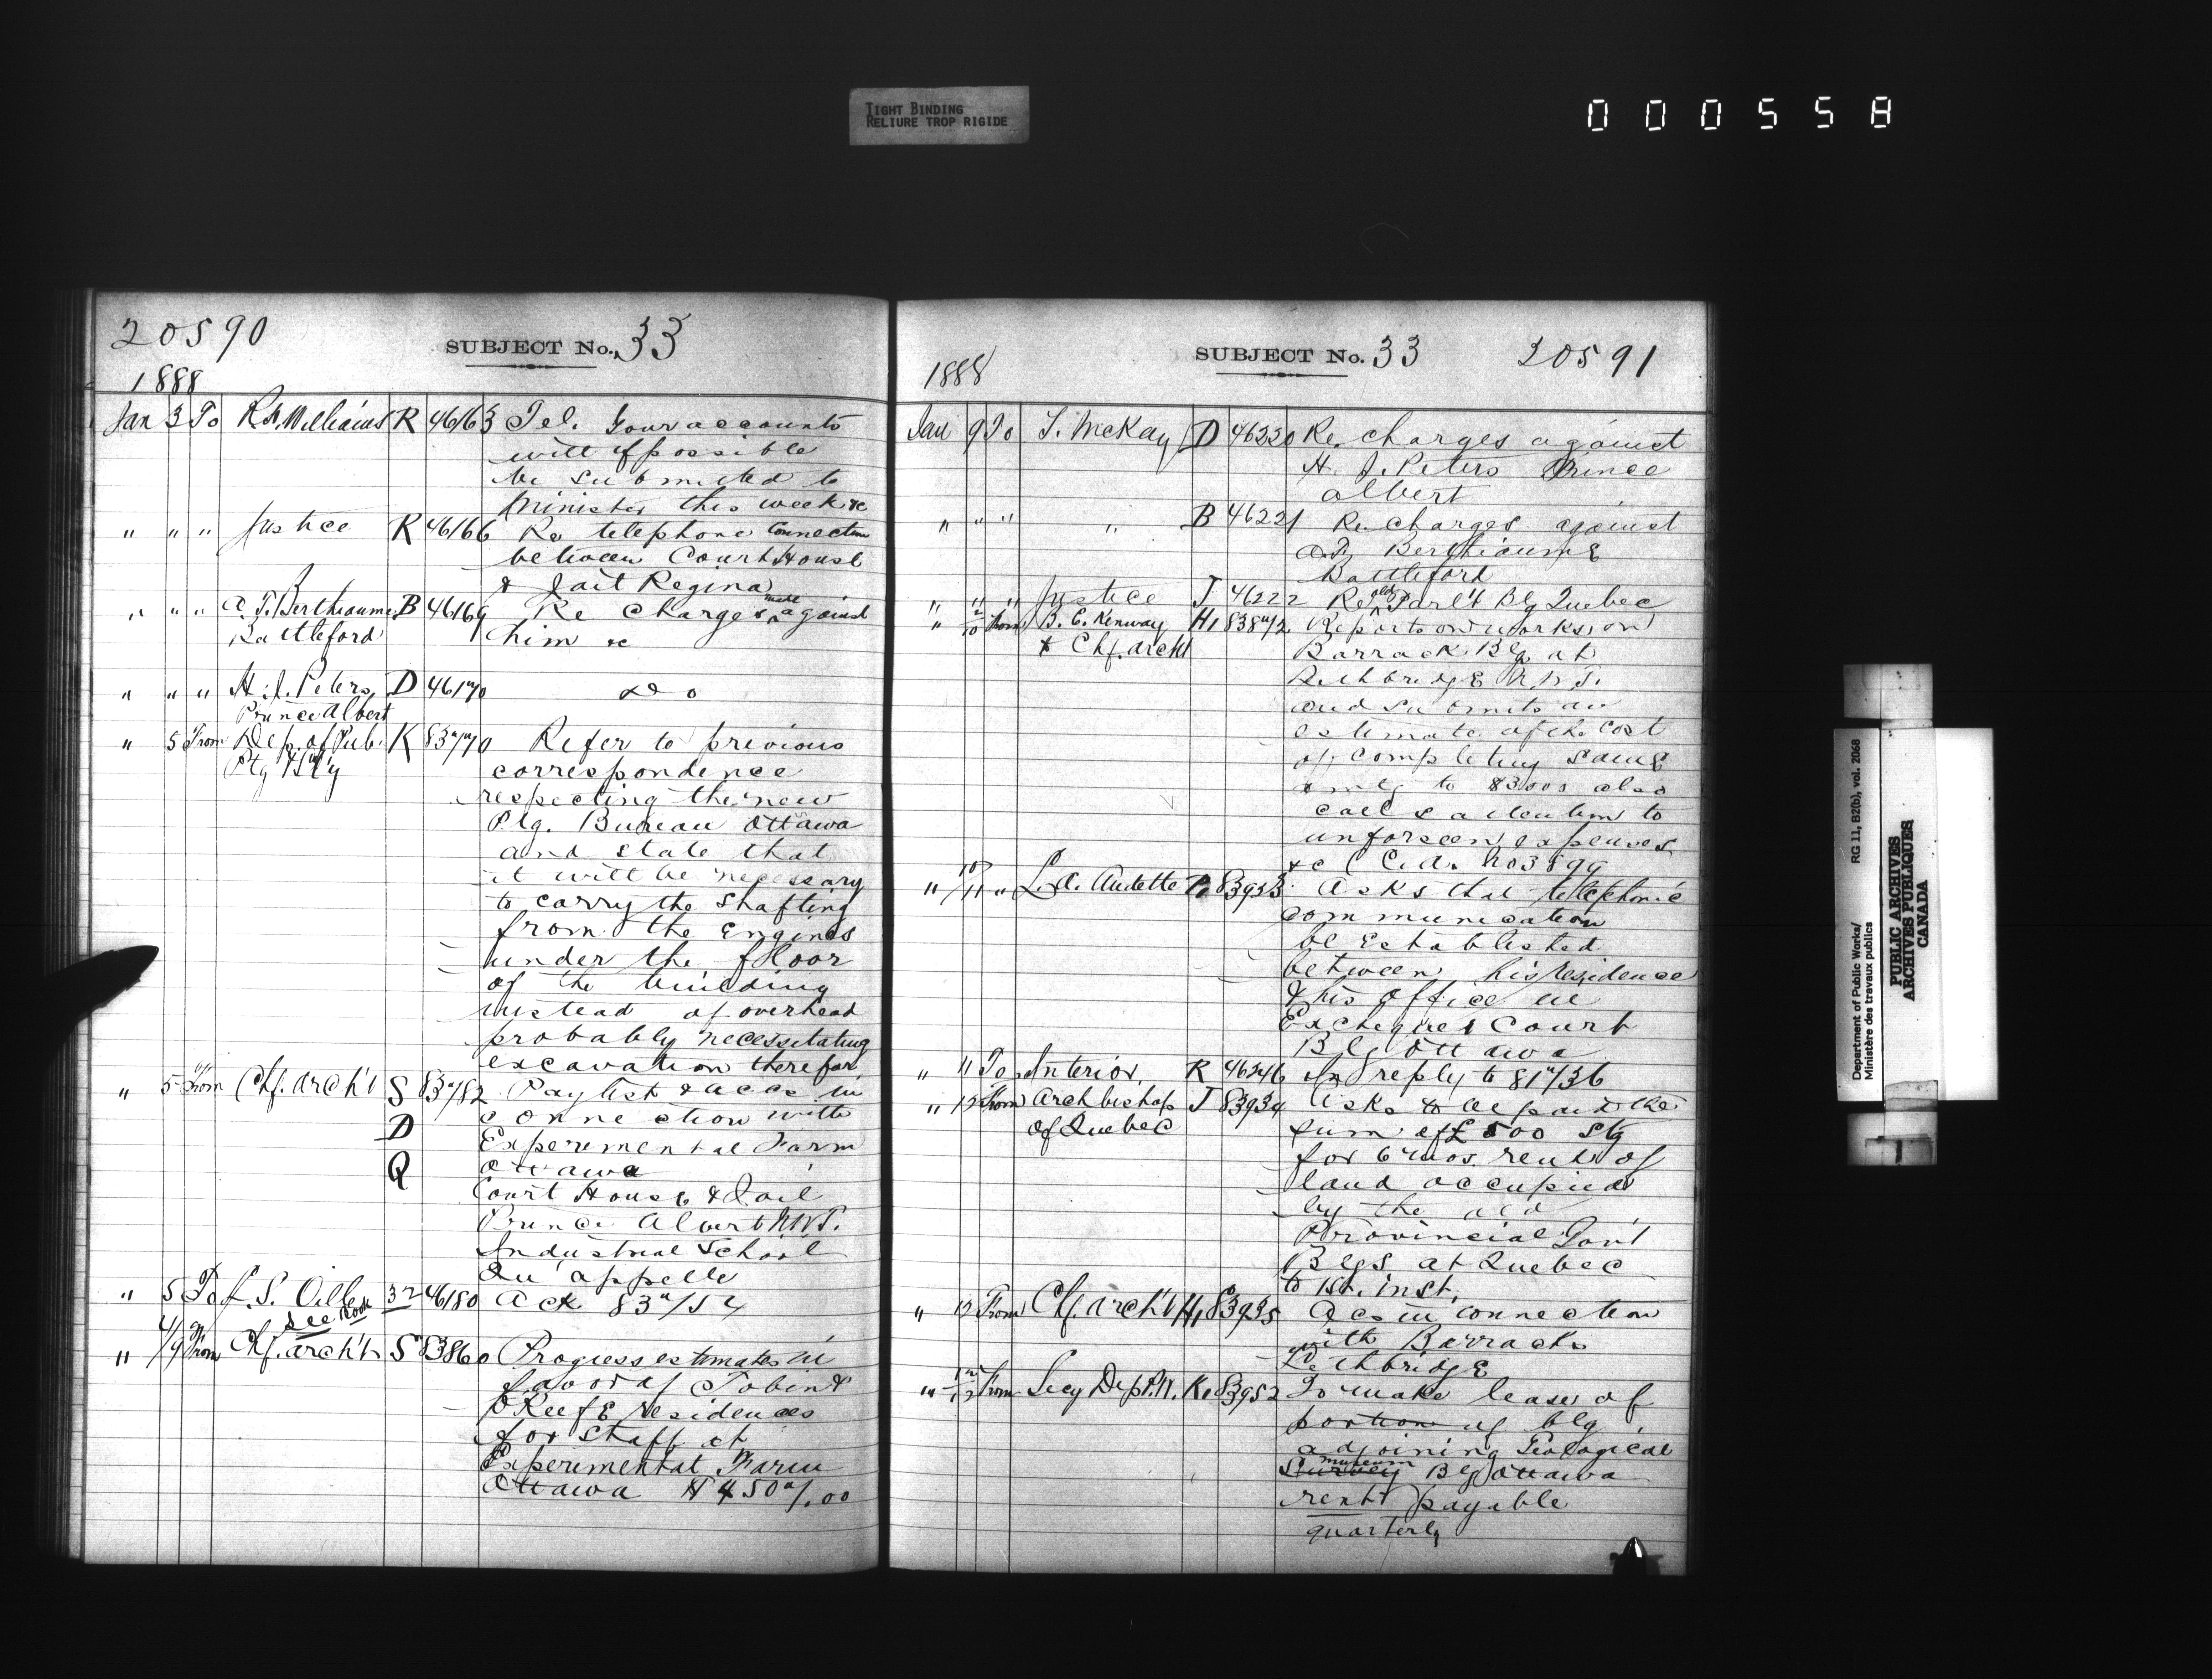 TIGHT BINDING
RELIURE TROP RIGIDE
000558
20590
SUBJECT No. 33
1888
Jan 3 To R. Williams R 46163 Tel. Your accounts
will if possible
be submitted to
Minister this week &c
" " " Justice R 46166 Re telephone connection
between Court House
& Jail Regina
" " " A. T. Berthiaume B 46169 Re Charges made against
Battleford him &c
" " " H. J. Peters D 46170 do
Prince Albert
" 5 From Dep. of Pub. K 83770 Refer to previous
Ptg & Sty correspondence
respecting the new
Ptg. Bureau Ottawa
and state that
it will be necessary
to carry the shafting
from the Engines
under the floor
of the building
instead of overhead
probably necessitating
excavation therefor
" 5 From Chf. Arch't S 83782 Paylist & accs in
D connection with
Experimental Farm
Q Ottawa
Court House & Jail
Prince Albert N.W.T.
Industrial School
Qu'appelle
" 5 To S. 32 46180 Ack 83754
See Book
" 4/9 From Chf. Arch't S 83860 Progress estimates in
favor of Tobin &
O'Keefe residences
for Staff at
Experimental Farm
Ottawa $4507.00
SUBJECT No. 33 20591
1888
Jan 9 To T. McKay D 46220 Re. charges against
H. J. Peters Prince
Albert
" " " " B 46221 Re charges against
A. T. Berthiaume
Battleford
" " " Justice J 46222 Re old Parl't Blg Quebec
" 2/10 From B. C. Kenway H1 83872 Reports on works on
& Chf. Archt Barrack Blg at
Lethbridge N.W.T.
and submits an
estimate of the cost
of completing same
amtg to $3500 also
calls attention to
unforseen expenses
&c
" 10/11 " L. A. Audette 83933 Asks that telephonic
communication
be established
between his residence
& his office in
Exchequer Court
Blg Ottawa
" 11 To Interior, R 46246 In reply to 81736
" 12 From Archbishop J 83934 Asks to be paid the
of Quebec sum of £500 Stg
for 6 mos. rent of
land occupied
by the old
Provincial Gov't
Blgs at Quebec
to 1st. inst.
" 12 From Chf. Arch't H1 83935 Acs in connection
with Barracks
Lethbridge
" 12/12 From Secy Dep P.W. K1 83952 To make lease of
portion of blg
adjoining Geological
Survey museum Blg Ottawa
rent payable
quarterly
Department of Public Works/ RG 11, B2(b), vol. 2068
Ministère des travaux publics
PUBLIC ARCHIVES
ARCHIVES PUBLIQUES
CANADA